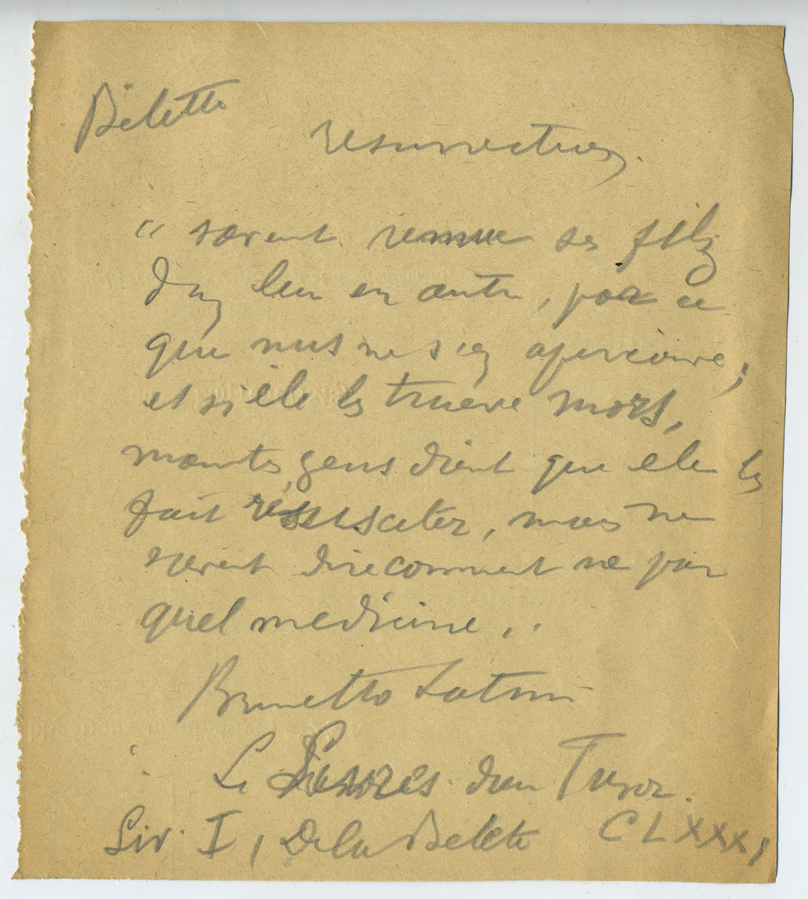 Belette
resurrection.
" sovent remue ses filz
d'un leu en autre, por ce
que nus ne s'en aperçoive;
et si ele les trueve mors,
maintes gens dient que ele les
fait résusciter, mais ne
sevent dire comment ne par
quel medicine..
Brunetto Latini
Li Livres dou Tresor.
Liv. I, De la Belete CLXXXI